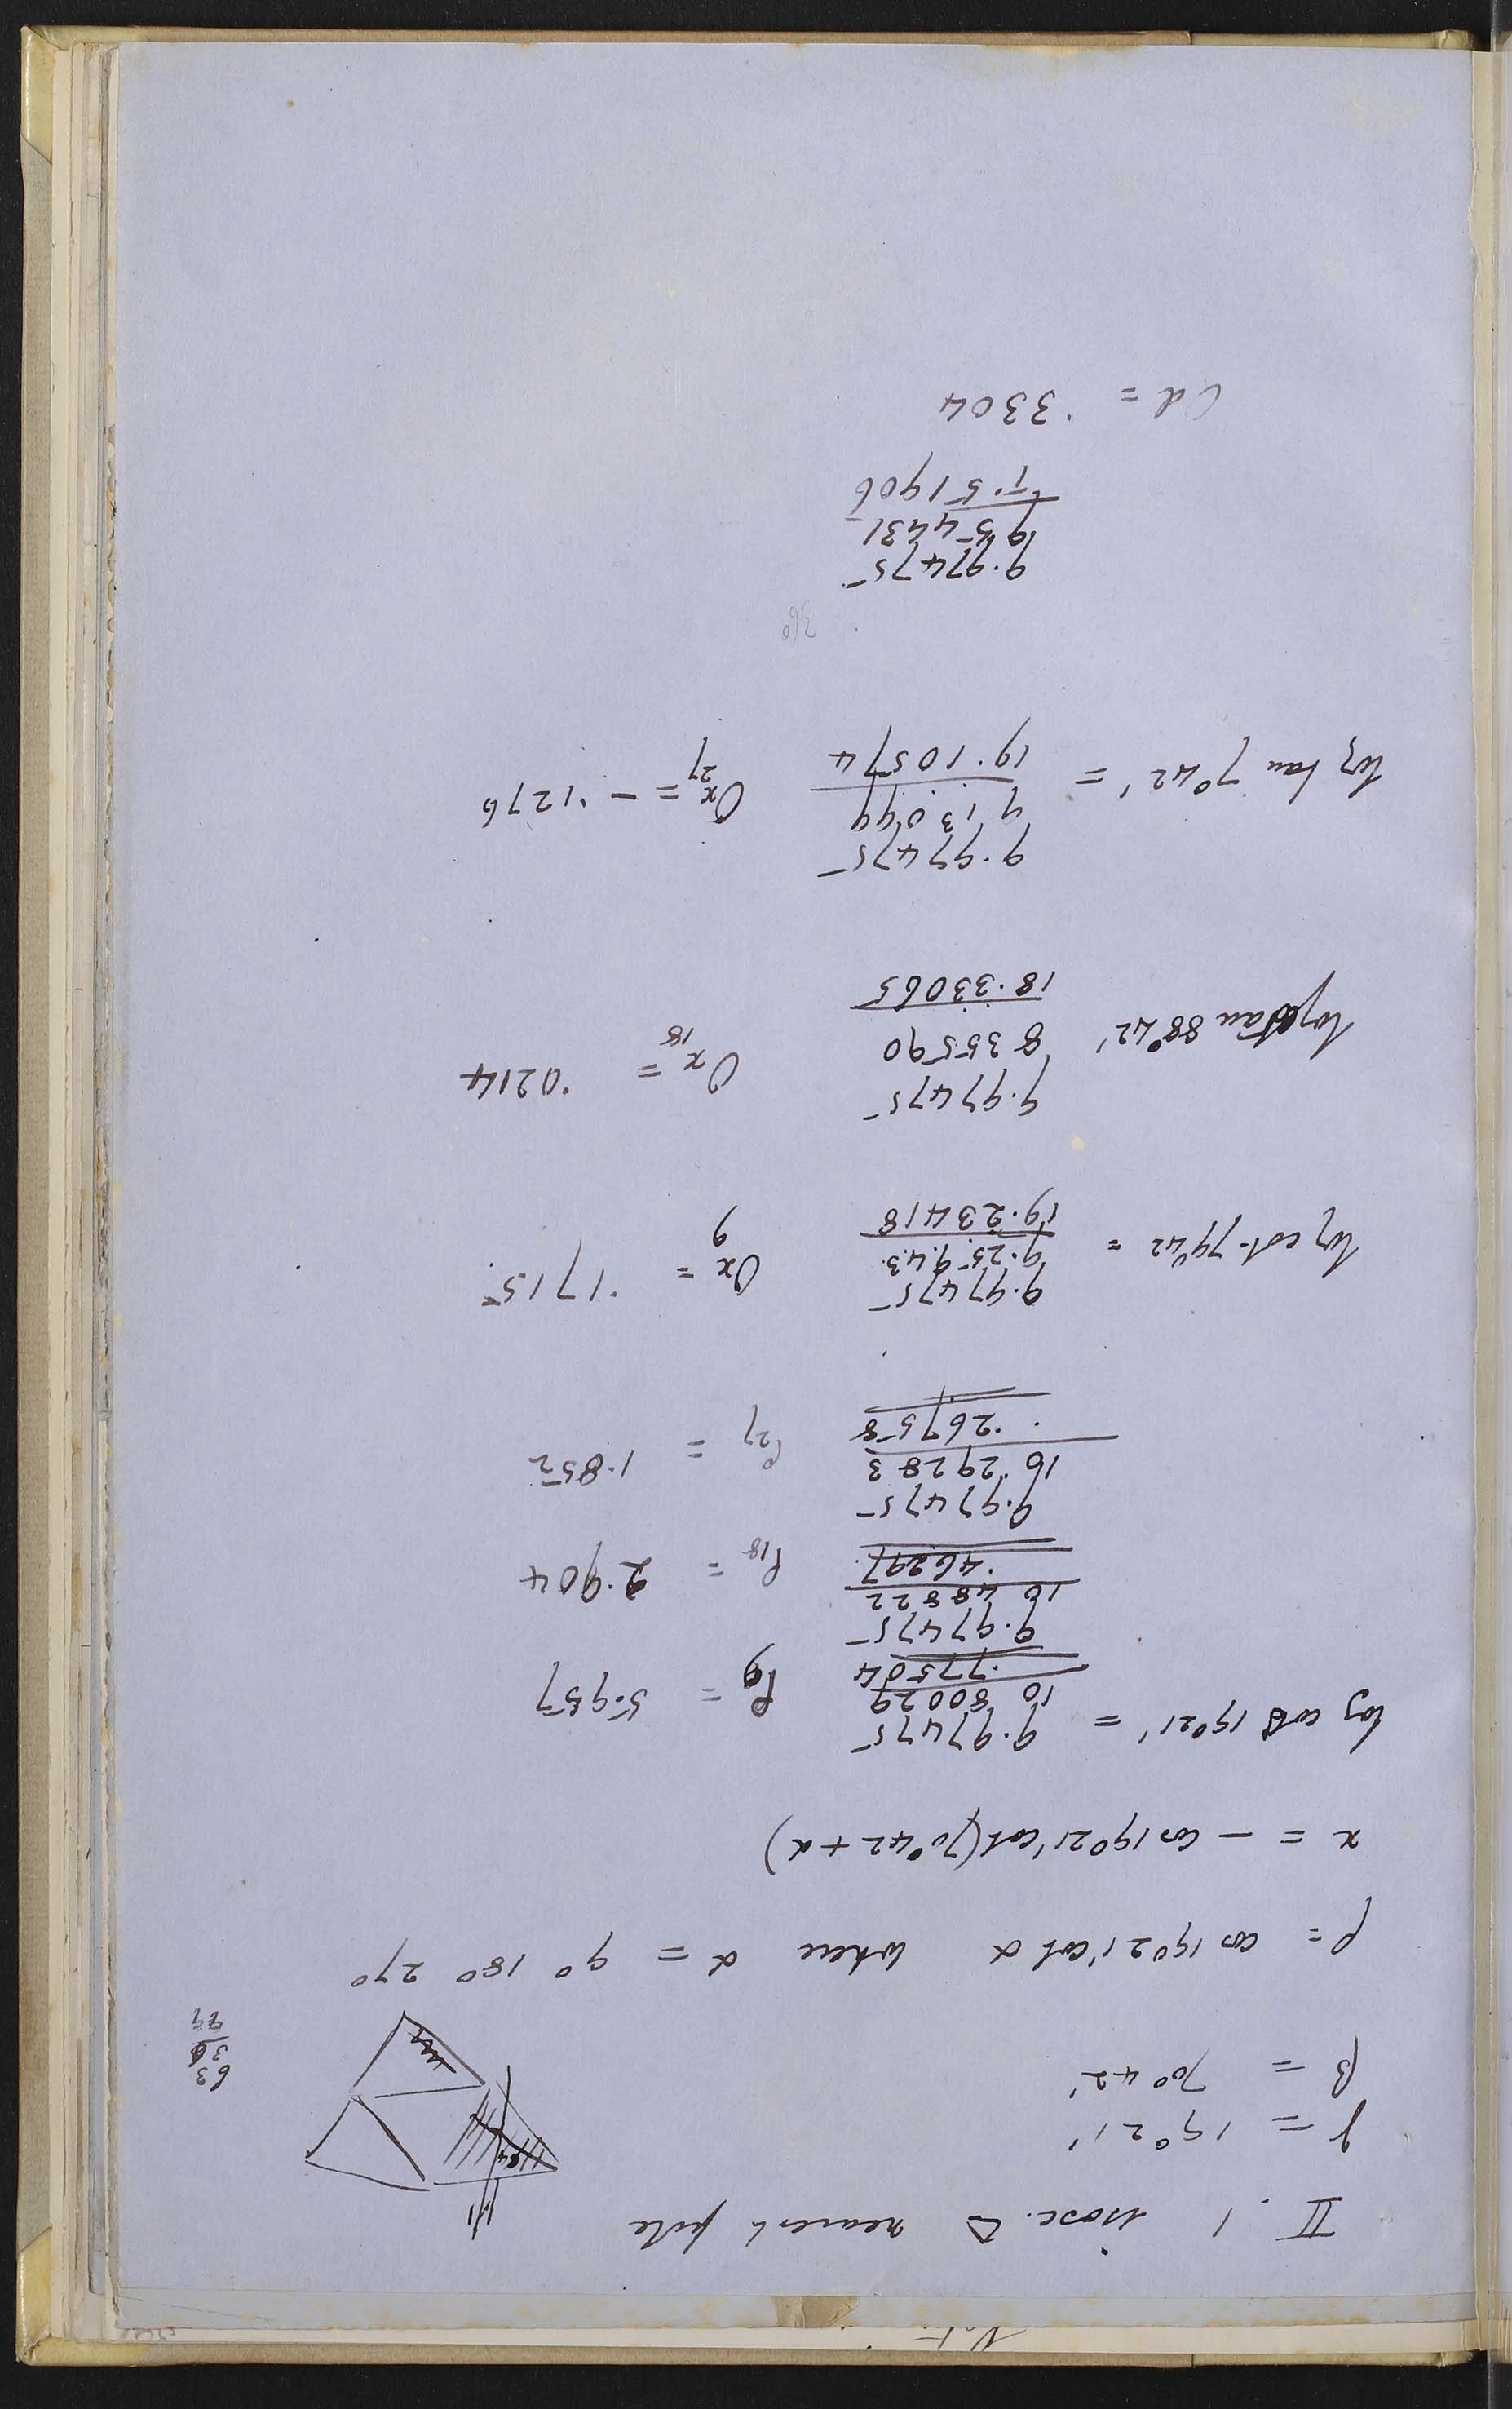 II. 1 isosc. △ nearest pole
γ = 19° 21'
β = 70° 42'
63
36
99
ρ = cos 19° 21' cot α where α = 9° 18° 27°
x = − cos 19° 21' cot (70° 42 + α)
log cos 19° 21' = 9.97475
10 80029
.77504 ρ9 = 5.957
9.97475
10 48822
.46297 ρ18 = 2.904
9.97475
10 29283
.26758 ρ27 = 1.852
log cot 79° 42' = 9.97475
9.25943
19.23418 Ox9 = .1715
9.97475
log tan 88° 42' 8 35590
18.33065 Ox18 = .0214
9.97475
9 13099
log tan 7° 42' = 19.10574 Ox27 = − .1276
360
9.97475
9 54431
1.51906
Cd = .3304